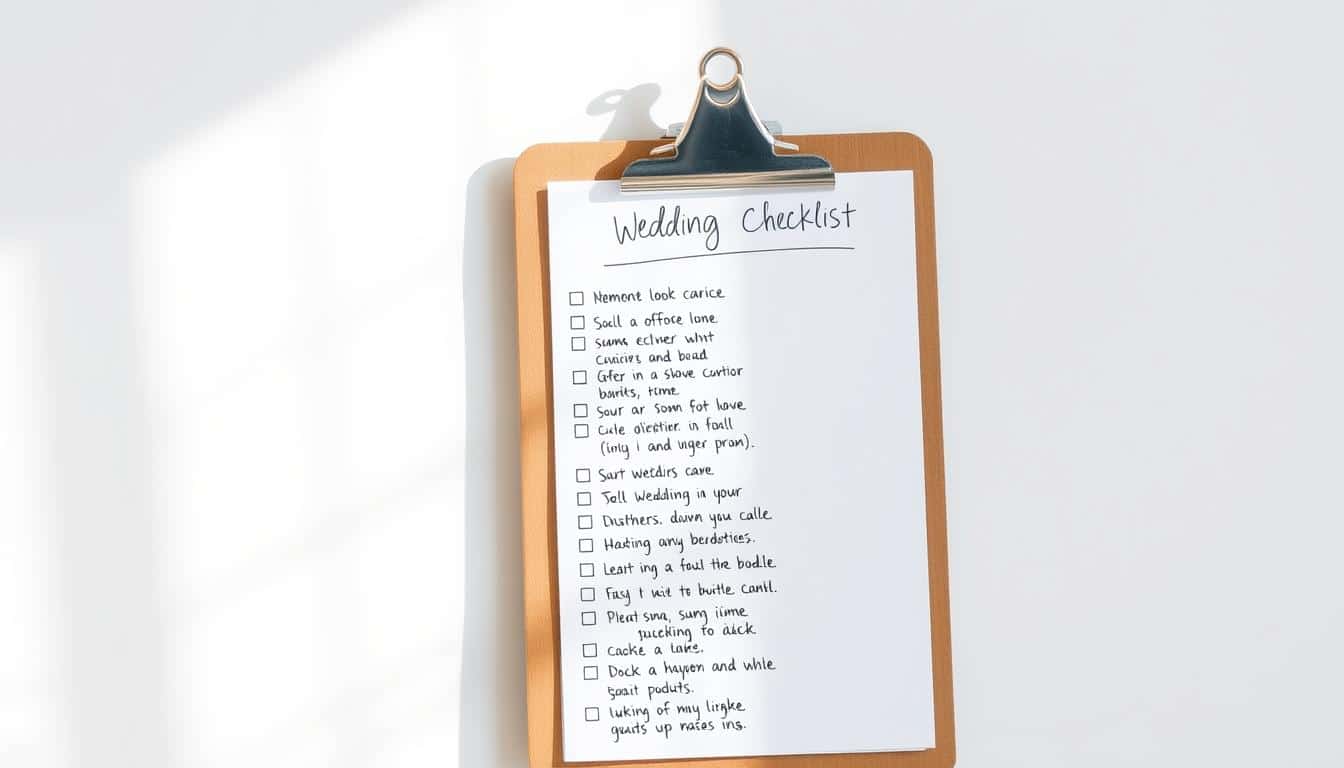 Wedding Checklist
Nemont look carice
Soell a offore lane
Sums eclner whit
and bead
Gfer in a slave curtior
barits, time
Sour ar Som fot lave
Cule in foall
(inly i and unger pron).
Surt wetdirs cave
Toll Wedding in your
Dusthers. down you calle
Hasting any berdstices.
Leart ing a foul the bodle
Fusy t wit to buitle cantl.
Plent sma, sung iime
pucking to
Cacke a lake.
Dock a hayon and while
poduts.
luking of my lirgke
guats up nases ins.